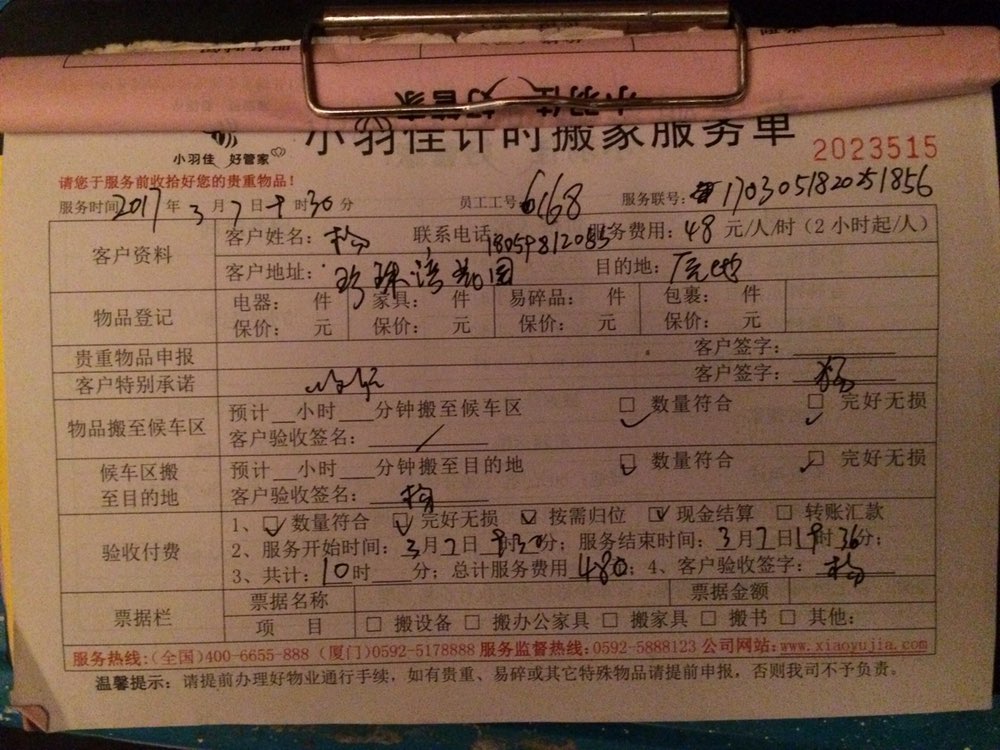 小羽佳 好管家
小羽佳计时搬家服务单
小羽佳 好管家
2023515
请您于服务前收拾好您的贵重物品！
服务时间2017年3月7日 时30分 员工工号:6168 服务联号:1703051820251856
客户资料
客户姓名:杨 联系电话 18059812085 服务费用:48元/人/时(2小时起/人)
客户地址:珍珠湾花园 目的地:
物品登记
电器: 件 家具: 件 易碎品: 件 包裹: 件
保价: 元 保价: 元 保价: 元 保价: 元
贵重物品申报 客户签字:
客户特别承诺 客户签字:杨
物品搬至候车区
预计__小时__分钟搬至候车区 □ 数量符合 □ 完好无损
客户验收签名:
候车区搬至目的地
预计__小时__分钟搬至目的地 □ 数量符合 □ 完好无损
客户验收签名:杨
验收付费
1、□数量符合 □完好无损 □按需归位 □现金结算 □转账汇款
2、服务开始时间:3月7日 时30分;服务结束时间:3月7日 时36分;
3、共计:10时__分;总计服务费用480;4、客户验收签字:杨
票据栏
票据名称 票据金额
项 目 □搬设备 □搬办公家具 □搬家具 □搬书 □其他:
服务热线:(全国)400-6655-888 (厦门)0592-5178888 服务监督热线:0592-5888123 公司网站:www.xiaoyujia.com
温馨提示:请提前办理好物业通行手续,如有贵重、易碎或其它特殊物品请提前申报,否则我司不予负责。